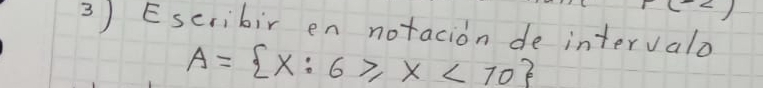 3) Escribir en notación de intervalo
A = {X: 6 ⩾ X < 10}